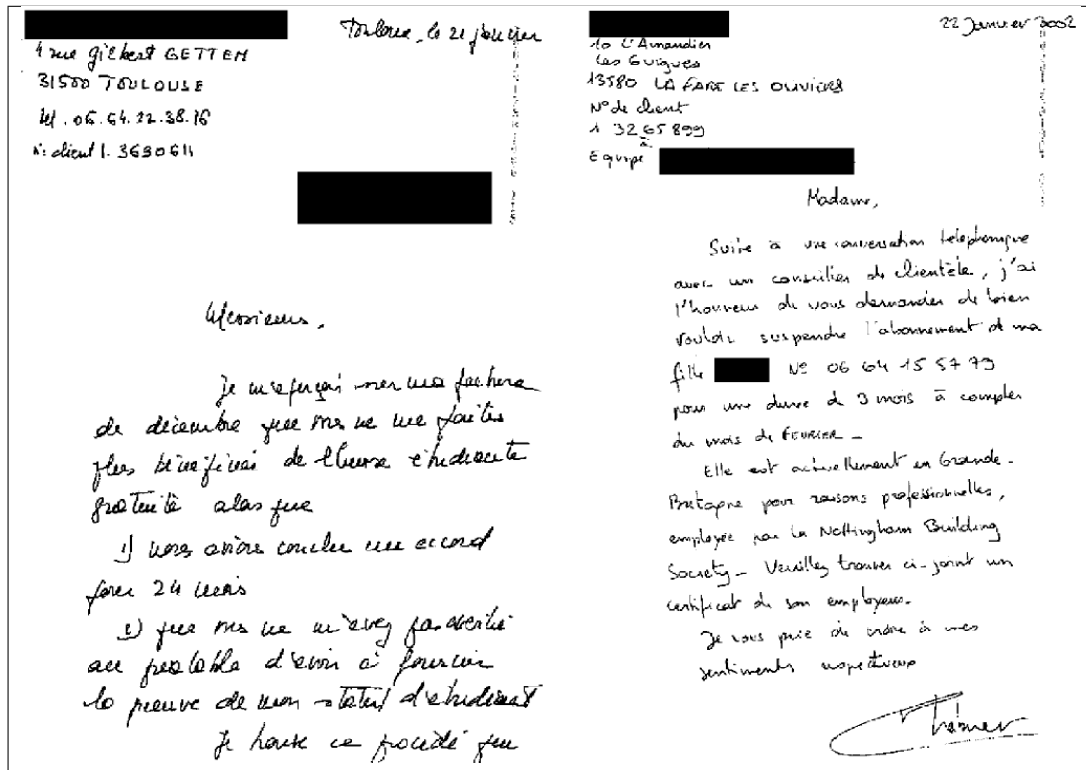 Toulouse, le 21 janvier
4 rue gilbert GETTEM
31500 TOULOUSE
tel. 06.64.22.38.16
n: client 1.3630611
Messieurs,
Je m'aperçois sur ma facture
de décembre que vous ne me faites
plus bénéficier de l'heure étudiante
gratuite alors que
1) nous avions conclu un accord
pour 24 mois
2) que vous ne m'avez pas averti
au préalable d'avoir à fournir
la preuve de mon statut d'étudiant
Je trouve ce procédé peu
22 Janvier 2002
10 L'Amandier
Les Guigues
13580 LA FARE LES OLIVIERS
N° de client
1 3265899
à
Equipe
Madame,
Suite à une conversation telephonique
avec un conseiller de clientèle, j'ai
l'honneur de vous demander de bien
vouloir suspendre l'abonnement de ma
fille N° 06 64 15 57 79
pour une durée de 3 mois à compter
du mois de FEVRIER -
Elle est actuellement en Grande-
Bretagne pour raisons professionnelles,
employée par la Nottingham Building
Society - Veuillez trouver ci-joint un
certificat de son employeur.
Je vous prie de croire à mes
sentiments respectueux